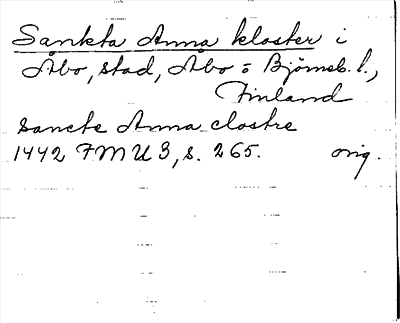 Sankta Anna kloster i
Åbo, stad, Åbo o Björneb. l.,
Finland
sancte Anna clostre
1442 FMU 3, s. 265. orig.